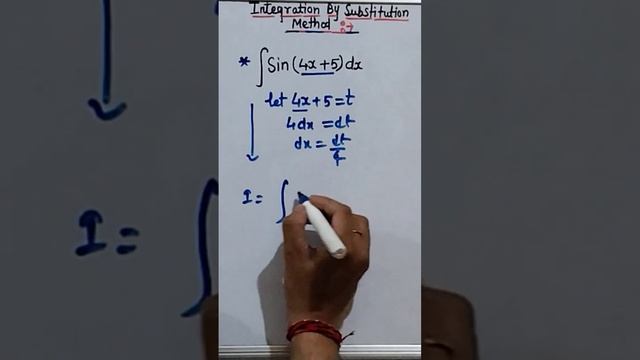 Integration By Substitution
Method :→
* ∫Sin(4x+5)dx
let 4x+5=t
4dx = dt
dx = dt/4
I = ∫
I =